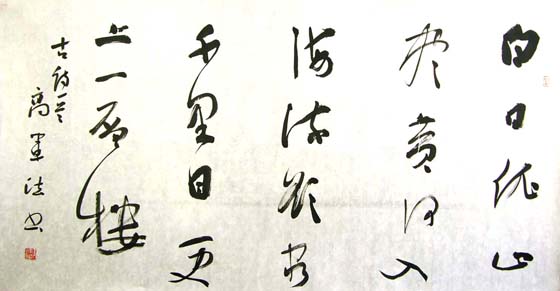 白日依山
尽黄河入
海流欲穷
千里目更
上一层樓
古诗一首
高法书